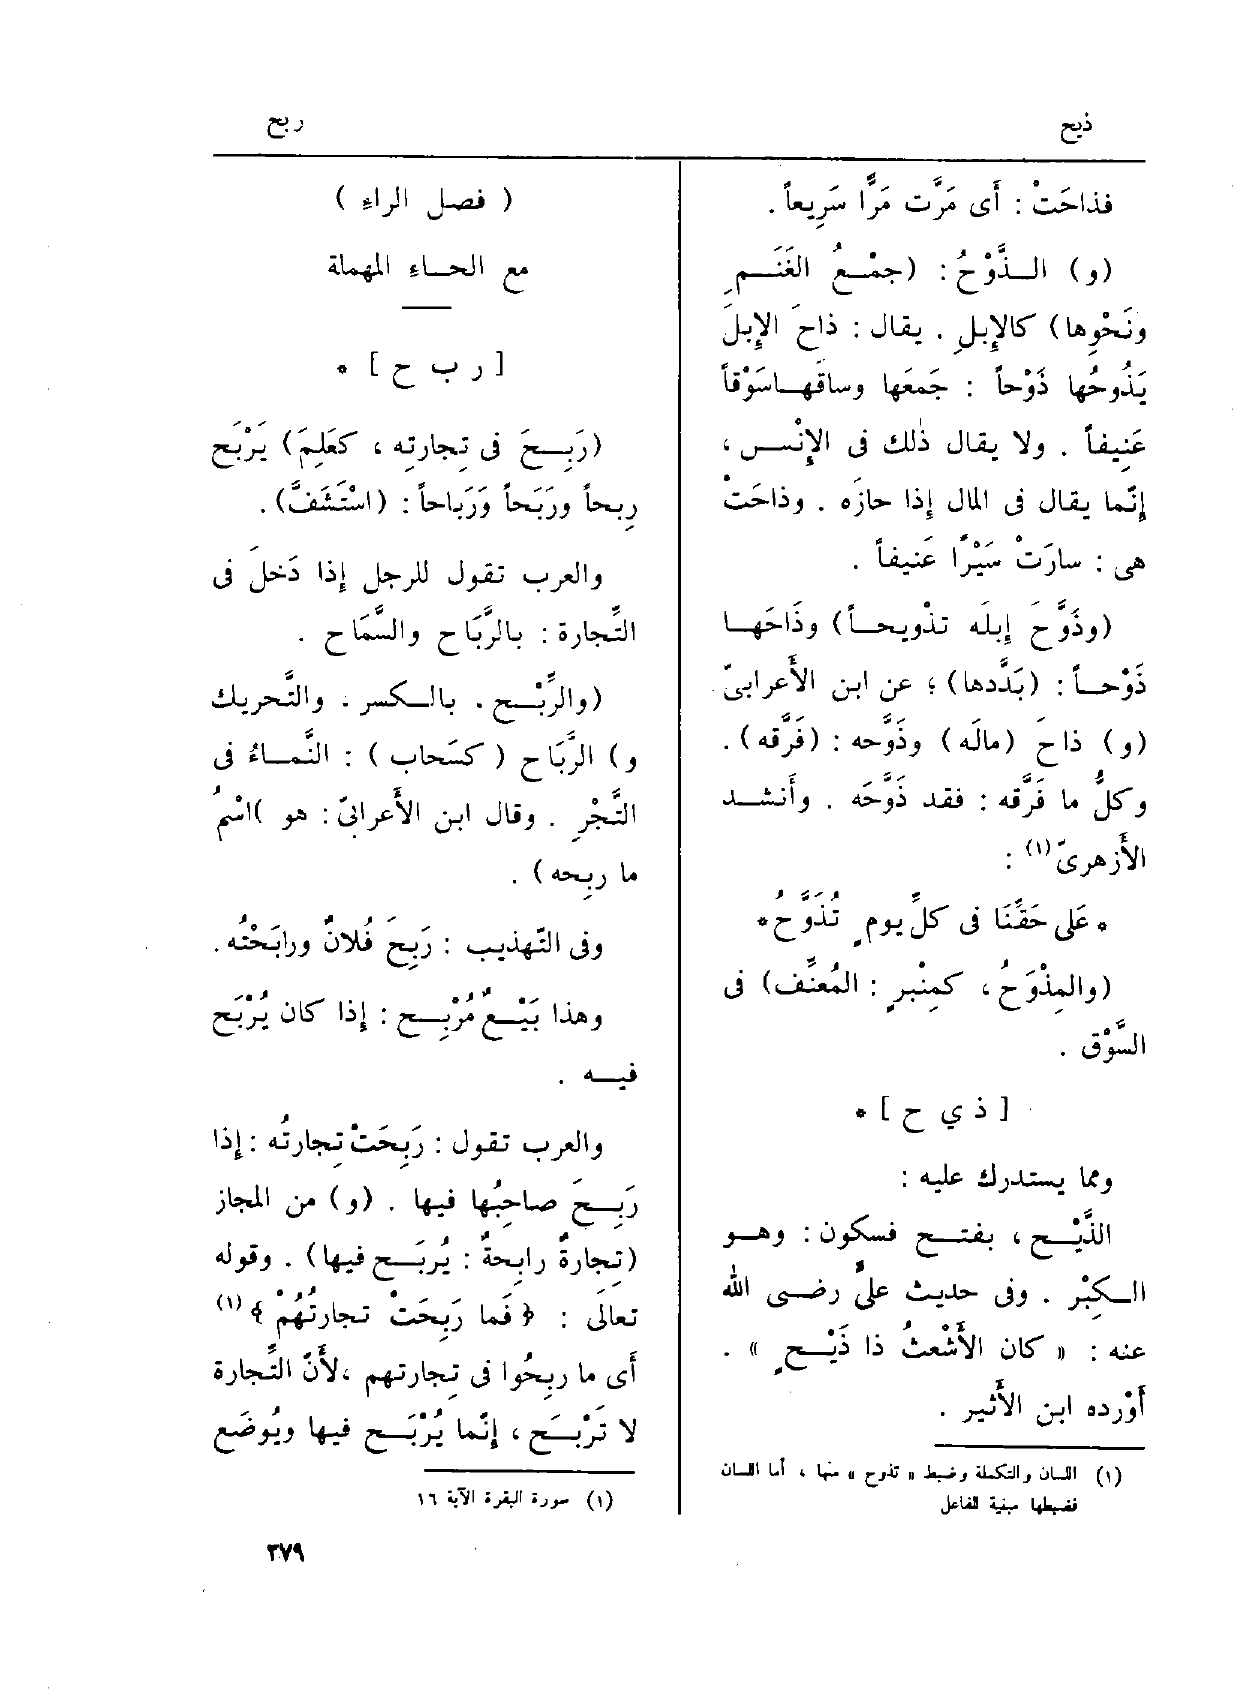 ذيح
ربح
فذاحَتْ : أى مَرَّت مَرًّا سَرِيعاً .
(و) الـذَّوْحُ : (جمْـعُ الغَنَـمِ
ونَحْوِها) كالإِبلِ . يقال : ذاحَ الإِبلَ
يَذُوحُها ذَوْحاً : جَمَعَها وساقَهـا سَوْقاً
عَنِيفاً . ولا يقال ذٰلك فى الإِنْسـ ،
إِنَّما يقال فى المال إِذا حازَه . وذاحَتْ
هى : سارَتْ سَيْرًا عَنيفاً .
(وذَوَّحَ إِبلَه تذْويحـاً) وذَاحَهـا
ذَوْحـاً : (بَدَّدها) ؛ عن ابن الأَعرابىّ
(و) ذاحَ (مالَه) وذَوَّحه : (فَرَّقه) .
وكلُّ ما فَرَّقه : فقد ذَوَّحَه . وأَنشـد
الأَزهرىّ (١) :
* عَلى حَقِّنَا فى كلِّ يومٍ تُذَوَّحُ *
(والمِذْوَحُ ، كمِنْبرٍ : المُعنِّف) فى
السَّوْق .
[ ذ ي ح ] *
ومما يستدرك عليه :
الذَّيْـح ، بفتـح فسكون : وهـو
الـكِبْر . وفى حديث علىٍّ رضـى اللّٰه
عنه : « كان الأَشْعثُ ذا ذَيْـحٍ » .
أَوْرده ابن الأَثير .
(١) اللسان والتكملة وضبط « تذوح » منها ، أما اللسان
فضبطها مبنية الفاعل
( فصل الراءِ )
مع الحـاءِ المهملة
[ ر ب ح ] *
(رَبِـحَ فى تِجارتِه ، كعَلِمَ) يَرْبَح
رِبحاً ورَبَحاً وَرَباحاً : (اسْتَشَفَّ) .
والعرب تقول للرجل إِذا دَخلَ فى
التِّجارة : بالرَّبَاح والسَّمَاح .
(والرِّبْـح . بالـكسر . والتَّحريك
و) الرَّبَاح ( كسَحاب ) : النَّمـاءُ فى
التَّجْرِ . وقال ابن الأَعرابىّ : هو )اسْمُ
ما ربِحه) .
وفى التّهذيب : رَبِحَ فُلانٌ ورابَحْتُه .
وهذا بَيْـعٌ مُرْبِـح : إِذا كان يُرْبَح
فيـه .
والعرب تقول : رَبِحَتْ تِجارتُه : إِذا
رَبِـحَ صاحِبُها فيها . (و) من المجاز
(تِجارةٌ رابِحةٌ : يُربَـح فيها) . وقوله
تعالَى : ﴿ فَما رَبِحَتْ تجارتُهُمْ ﴾ (١)
أَى ما ربِحُوا فى تِجارتهم ، لأَنّ التِّجارة
لا تَرْبـَح ، إِنَّما يُرْبَـح فيها ويُوضَع
(١) سورة البقرة الآية ١٦
٣٧٩